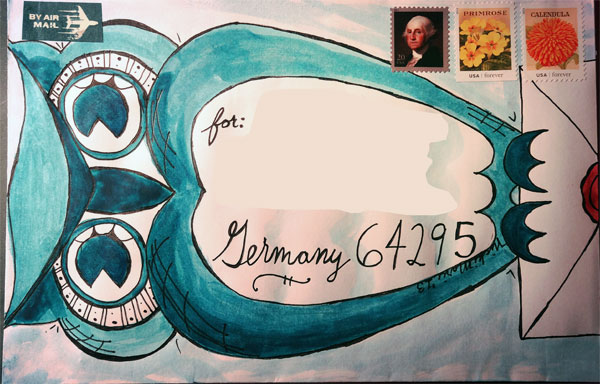 BY AIR
MAIL
20
PRIMROSE
USA forever
CALENDULA
USA forever
for:
Germany 64295